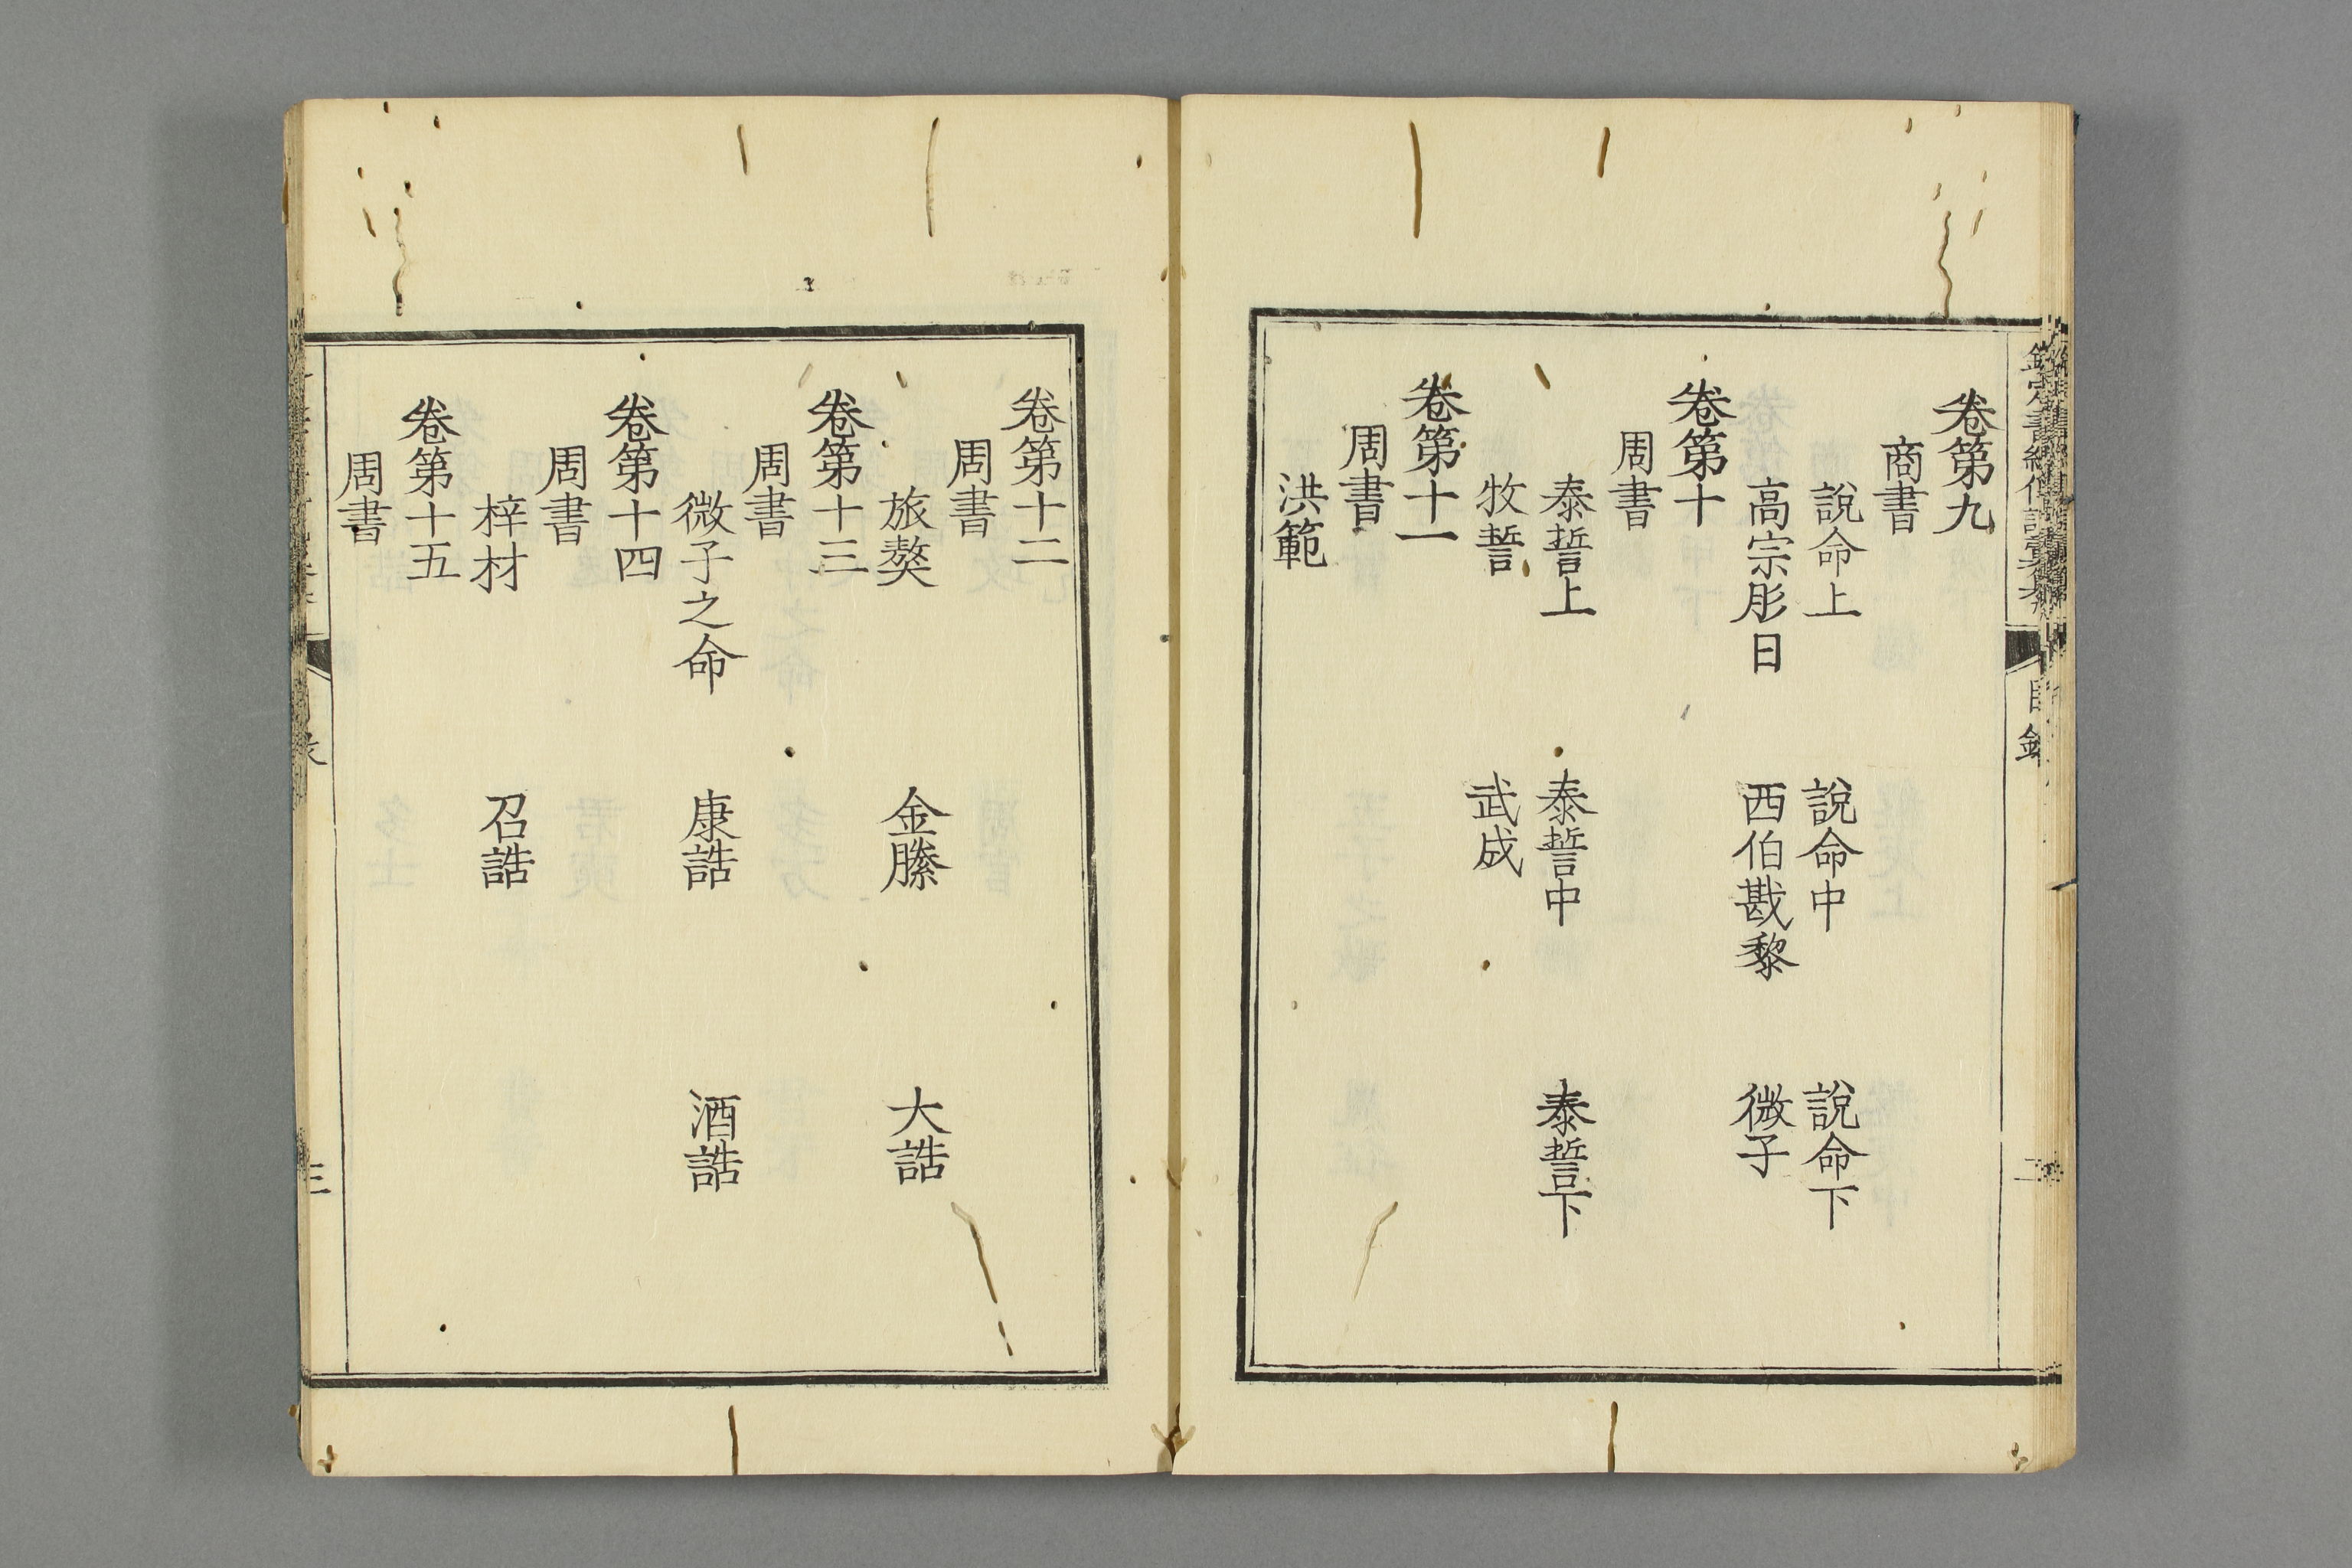 卷第九
商書
說命上 說命中 說命下
高宗肜日 西伯戡黎 微子
卷第十
周書
泰誓上 泰誓中 泰誓下
牧誓 武成
卷第十一
周書
洪範
卷第十二
周書
旅獒 金縢 大誥
卷第十三
周書
微子之命 康誥 酒誥
卷第十四
周書
梓材 召誥
卷第十五
周書
三